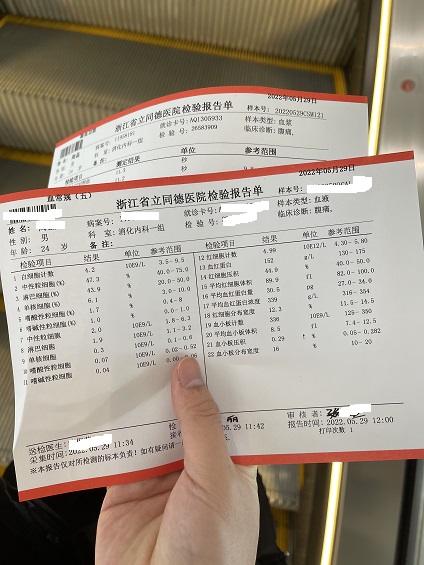 2022年05月29日
浙江省立同德医院检验报告单
样本号: 20220529CSM121
就诊卡号: AQ1305933
样本类型: 血浆
科 室: 消化内科一组
检 验 号: 26583909
临床诊断: 腹痛,
检验项目 测定结果 单位 参考范围
11.3 秒
秒
血常规（五）
2022年05月29日
浙江省立同德医院检验报告单
样本号:
姓名:
病案号:
就诊卡号:
样本类型: 血液
性 别: 男
科 室: 消化内科一组
检 验 号:
临床诊断: 腹痛,
年 龄: 24 岁
备 注:
检验项目 结果 单位 参考范围
1 白细胞计数 4.2 10E9/L 3.5-9.5
2 中性粒细胞(%) 47.3 % 40.0-75.0
3 淋巴细胞(%) 43.9 % 20.0-50.0
4 单核细胞(%) 6.1 % 3.0-10.0
5 嗜酸性粒细胞(%) 1.7 % 0.4-8
6 嗜碱性粒细胞(%) 1.0 % 0.0-1.0
7 中性粒细胞 2.0 10E9/L 1.8-6.3
8 淋巴细胞 1.9 10E9/L 1.1-3.2
9 单核细胞 0.3 10E9/L 0.1-0.6
10 嗜酸性粒细胞 0.07 10E9/L 0.02-0.52
11 嗜碱性粒细胞 0.04 0.00-0.06
检验项目 结果 单位 参考范围
12 红细胞计数 4.99 10E12/L 4.30-5.80
13 血红蛋白 152 g/L 130-175
14 红细胞压积 44.9 % 40.0-50.0
15 平均红细胞体积 89.9 fl 82.0-100.0
16 平均血红蛋白量 30.5 pg 27.0-34.0
17 平均血红蛋白浓度 339 g/L 316-354
18 红细胞分布宽度 12.3 % 11.5-14.5
19 血小板计数 336 10E9/L 125-350
20 平均血小板体积 8.5 fl 7.4-12.5
21 血小板压积 0.29 ↑ % 0.05-0.282
22 血小板分布宽度 16 % 10-20
送检医生:
审 核 者:
采集时间: 2022.05.29 11:34
.05.29 11:42
报告时间: 2022.05.29 12:00
※本报告仅对所检测的标本负责！如有疑问请一
打印次数 1